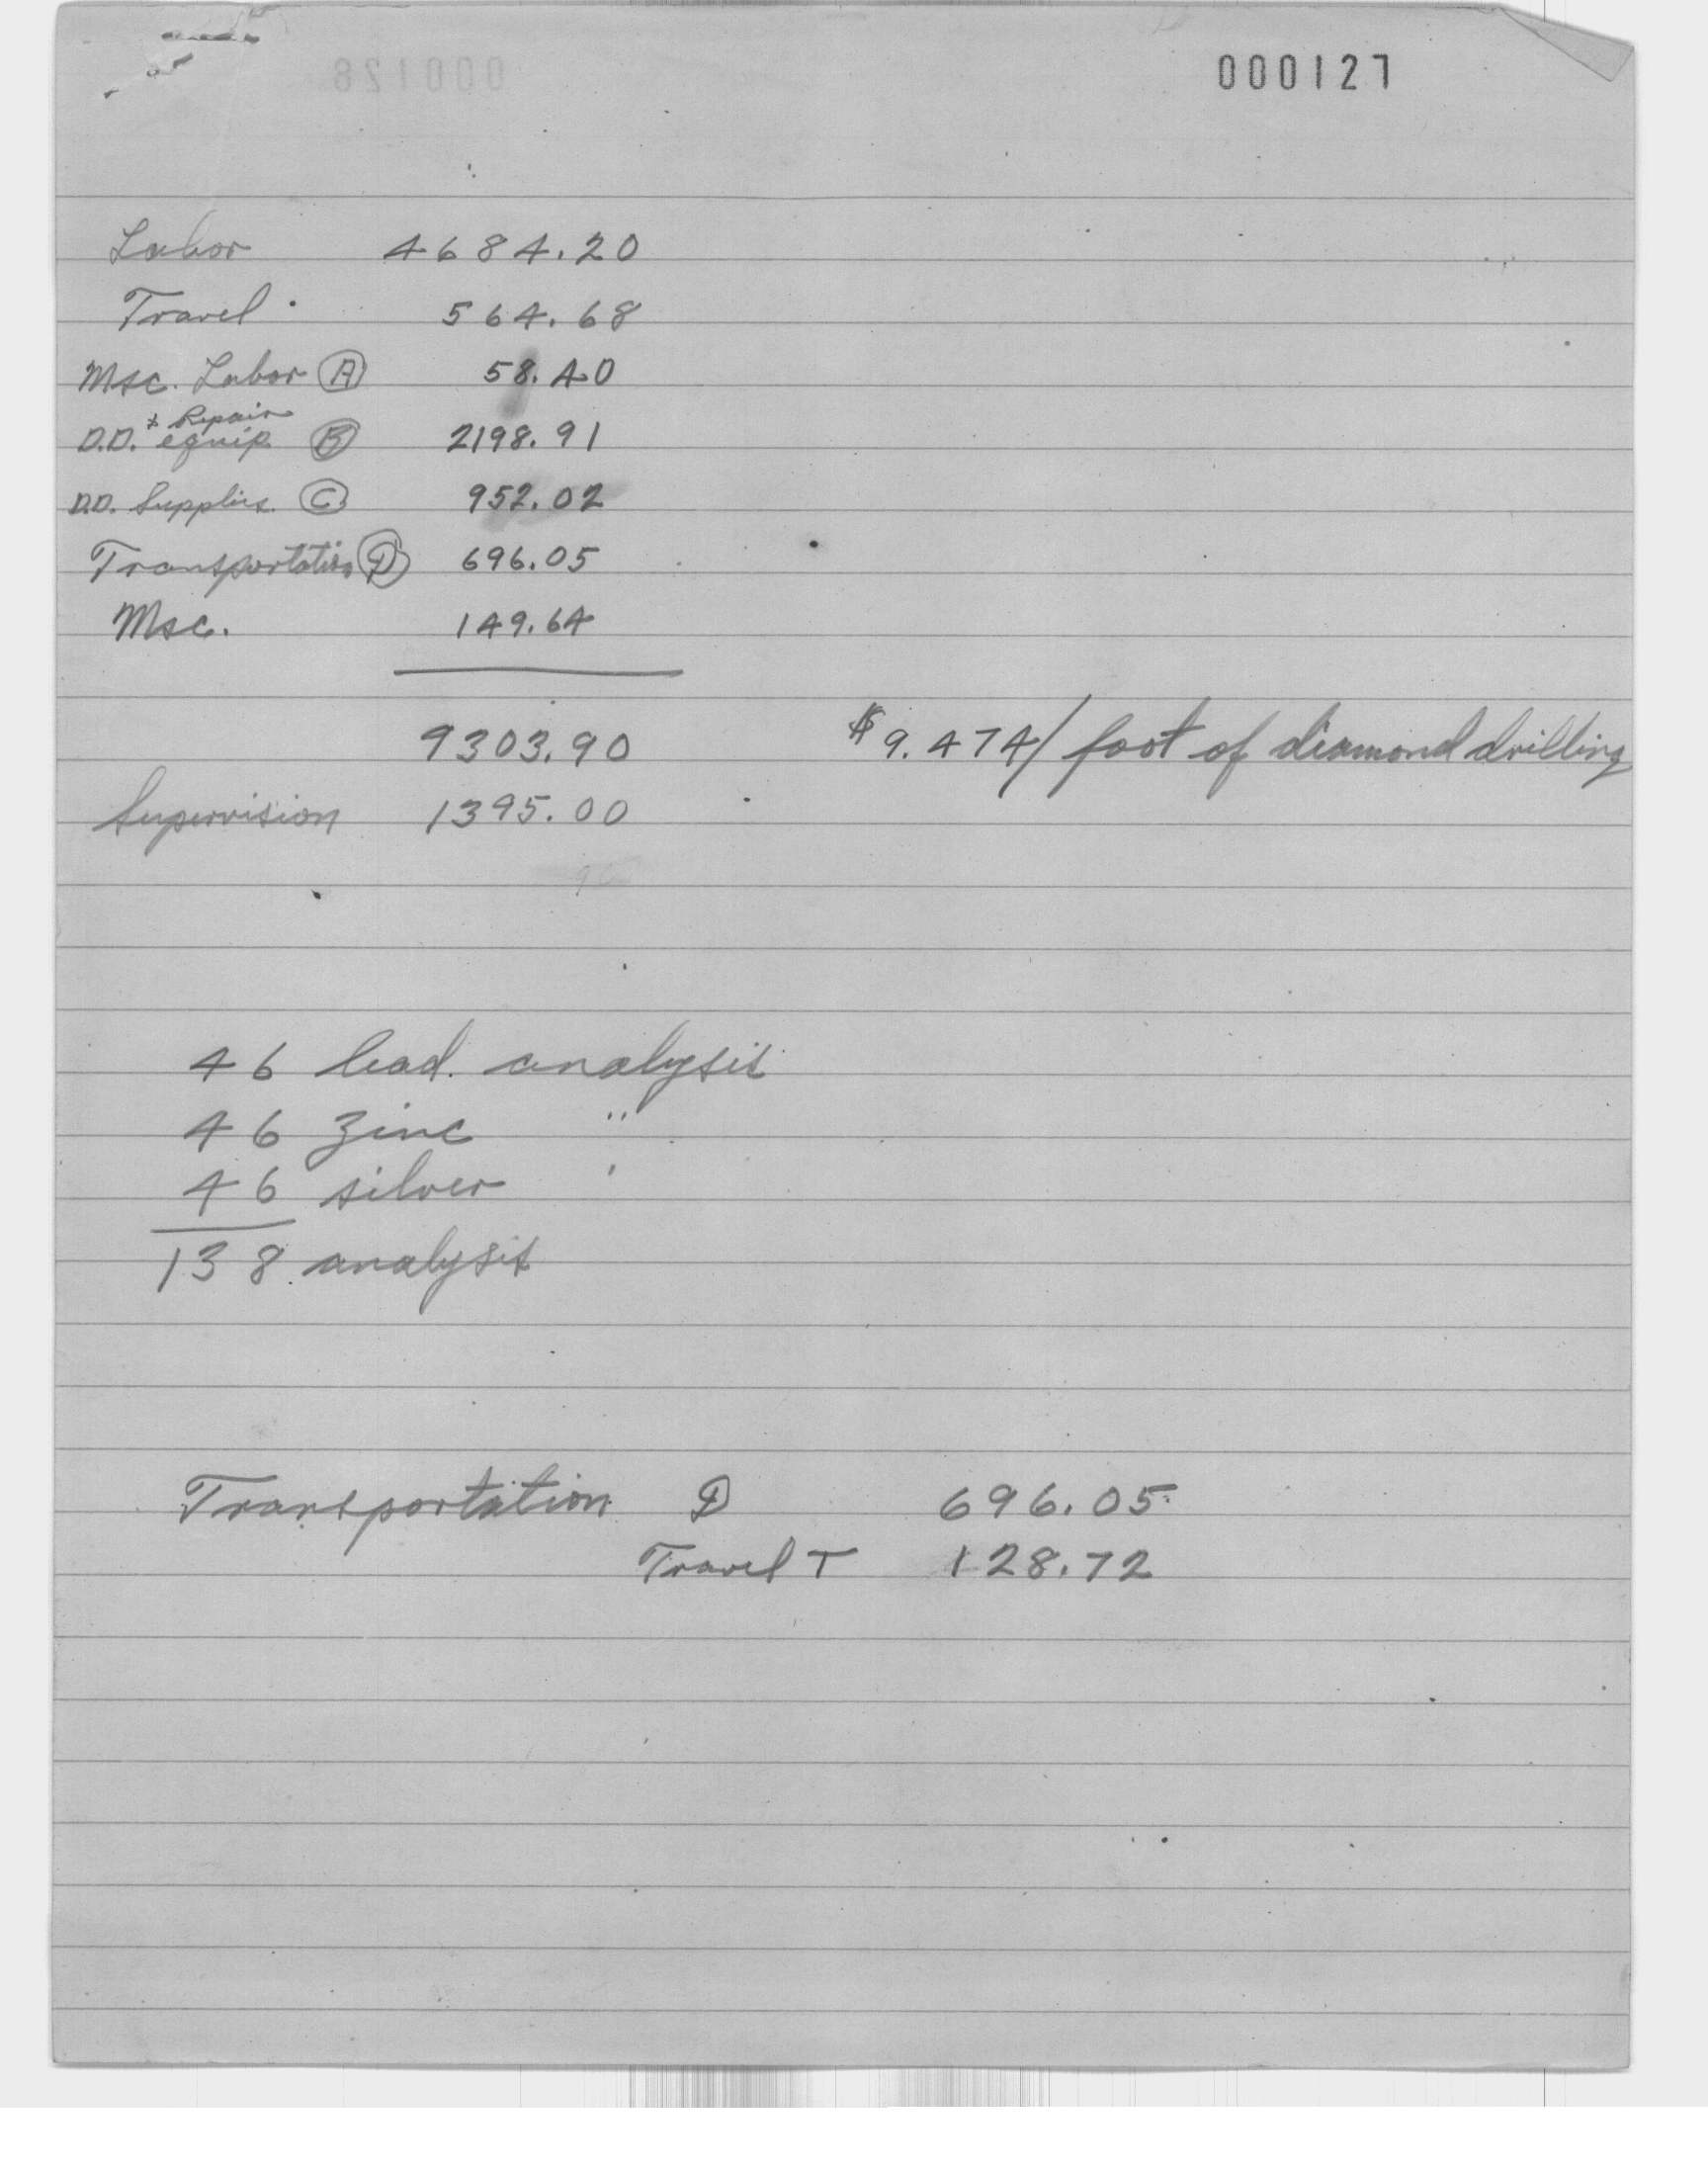 000127
Labor 4684.20
Travel 564.68
Msc. Labor A 58.40
D.D. + Repair equip B 2198.91
D.D. Supplies C 952.02
Transportation D 696.05
Msc. 149.64
9303.90 $9.474/foot of diamond drilling
Supervision 1395.00
46 lead. analysis
46 zinc "
46 silver '
138 analysis
Transportation D 696.05
Travel T 128.72